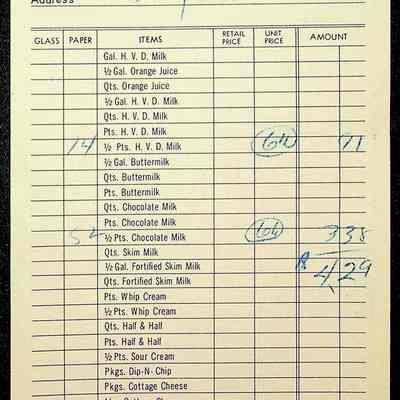 Address
GLASS PAPER ITEMS RETAIL PRICE UNIT PRICE AMOUNT
Gal. H. V. D. Milk
½ Gal. Orange Juice
Qts. Orange Juice
½ Gal. H. V. D. Milk
Qts. H. V. D. Milk
Pts. H. V. D. Milk
14 ½ Pts. H. V. D. Milk 6½ 91
½ Gal. Buttermilk
Qts. Buttermilk
Pts. Buttermilk
Qts. Chocolate Milk
Pts. Chocolate Milk
52 ½ Pts. Chocolate Milk 6½ 3 38
Qts. Skim Milk
½ Gal. Fortified Skim Milk 4 29
Qts. Fortified Skim Milk
Pts. Whip Cream
½ Pts. Whip Cream
Qts. Half & Half
Pts. Half & Half
½ Pts. Sour Cream
Pkgs. Dip-N-Chip
Pkgs. Cottage Cheese